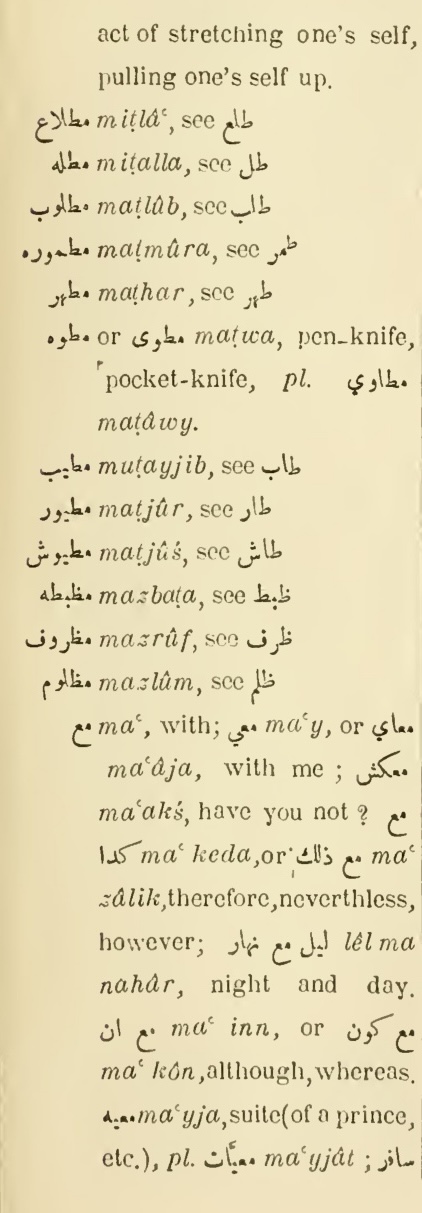 act of stretching one's self,
pulling one's self up.
مطلاع miṭlâʿ, see طلع
مطله miṭalla, see طل
مطلوب maṭlûb, see طلب
مطموره maṭmûra, see طمر
مطهر maṭhar, see طهر
مطوه or مطوى maṭwa, pen-knife,
pocket-knife, pl. مطاوي
maṭâwy.
مطيب muṭayjib, see طاب
مطيور maṭjûr, see طار
مطيوش maṭjûś, see طاش
مظبطه mazbaṭa, see ظبط
مظروف mazrûf, see ظرف
مظلوم mazlûm, see ظلم
مع maʿ, with; معي maʿy, or معاي
maʿâja, with me ; معكش
maʿakś, have you not ? مع
كدا maʿ keda, or مع ذلك maʿ
zâlik, therefore, nevertheless,
however; ليل مع نهار lêl ma
nahâr, night and day.
مع ان maʿ inn, or مع كون
maʿ kôn, although, whereas.
معيه maʿyja, suite (of a prince,
etc.), pl. معيّات maʿyjât ; سافر